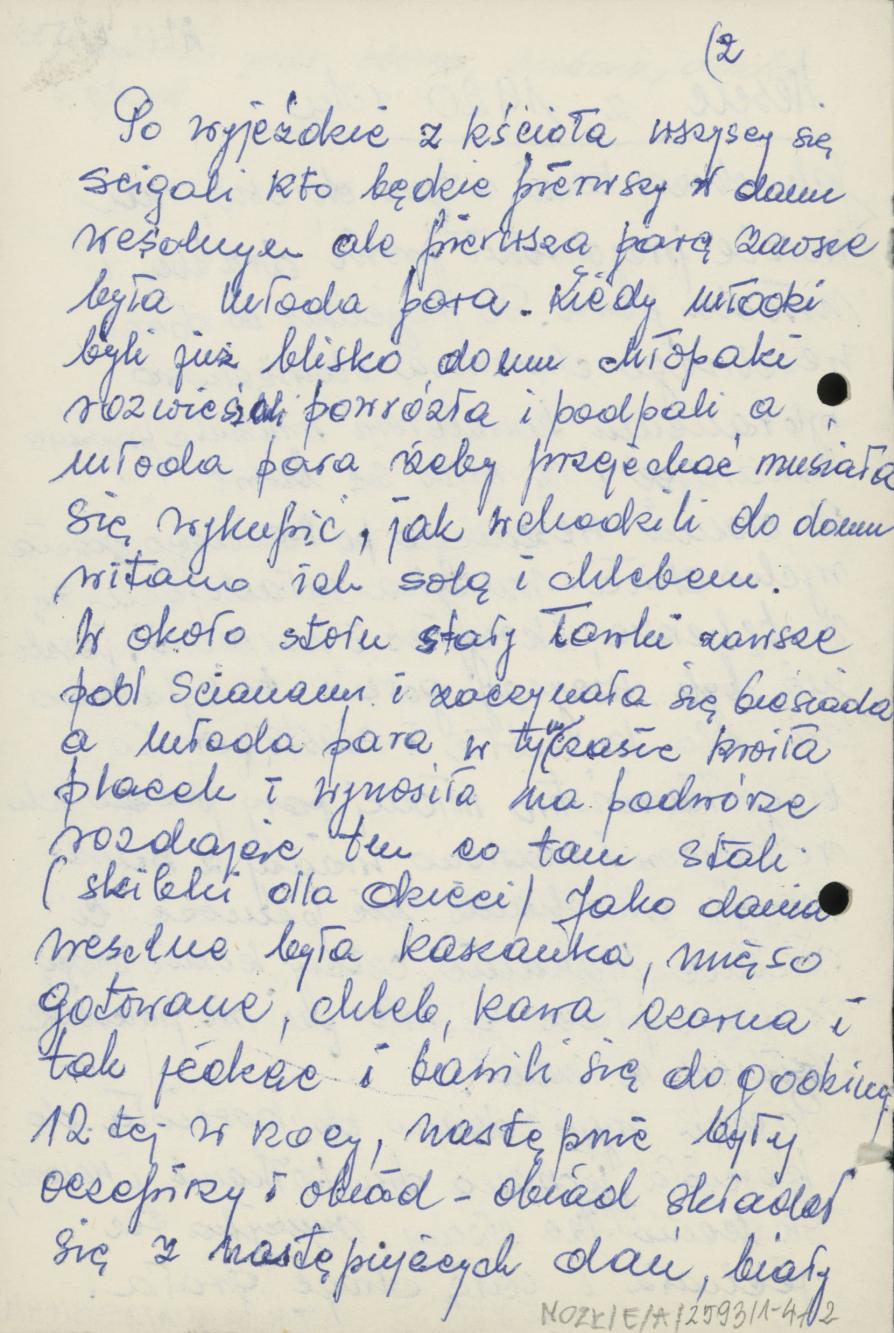 (2
Po wyjeździe z kścioła wszyscy się
scigali kto będzie pierwszy w domu
weselnym ale pierwszą parą zawsze
była młoda para. Kiedy młodzi
byli już blisko domu chłopaki
rozwieszali powrózła i podpali a
młoda para żeby przejechać musiała
się wykupić, jak wchodzili do domu
witano ich solą i chlebem.
W około stołu stały ławki zawsze
pod scianami i zaczynała się biesiada
a młoda para w tym czasie kroiła
placek i wynosiła na podwórze
rozdając tem co tam stali.
(skibki dla dzieci) Jako dania
weselne była kaszanka, mięso
gotowane, chleb, kawa czarna i
tak jedząc i bawili się do godziny
12-tej w nocy, następnie były
oczepiny i obiad - obiad składał
się z następujących dań, biały
MOZK/E/A/2593/1-4/2